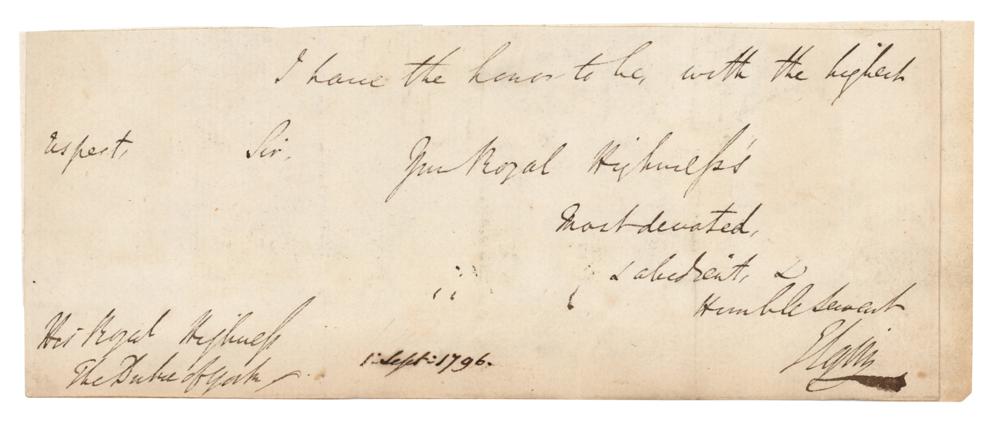 I have the honor to be, with the highest
respect, Sir,
Your Royal Highness's
Most devoted,
& obedient, &
Humble servant
Elgin
His Royal Highness
The Duke of York
1: Sept: 1796.